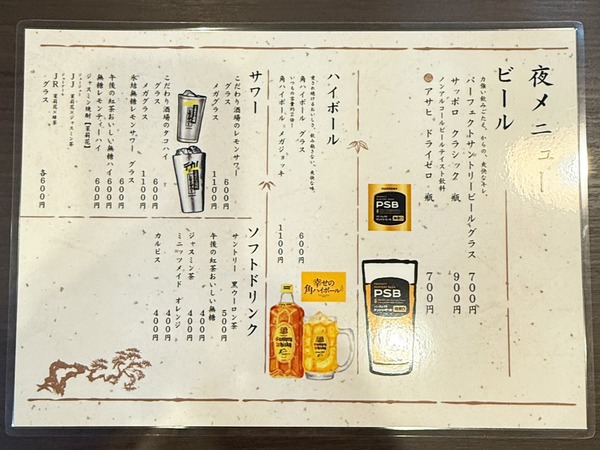 夜メニュー
ビール
力強い飲みごたえ。からの、爽快なキレ。
パーフェクトサントリービールグラス 700円
サッポロ クラシック 瓶 900円
ノンアルコールビールテイスト飲料
アサヒ ドライゼロ 瓶 700円
PSB
PSB
ハイボール
愛され続けるおいしさ。飲み飽きない、爽快な味。
角ハイボール グラス 600円
角ハイボール メガジョッキ 1100円
幸せの
角ハイボール
サワー
こだわり酒場のレモンサワー
グラス 600円
メガグラス 1100円
こだわり酒場のタコハイ
グラス 600円
メガグラス 1100円
氷結無糖レモンサワー グラス 600円
午後の紅茶おいしい無糖ハイ 600円
無糖レモンティーハイ 600円
ジャスミン焼酎【茉莉花】
JJ 茉莉花×ジャスミン茶
JR 茉莉花×緑茶
グラス 各600円
ソフトドリンク
サントリー 黒ウーロン茶 500円
午後の紅茶おいしい無糖 400円
ジャスミン茶 400円
ミニッツメイド オレンジ 400円
カルピス 400円